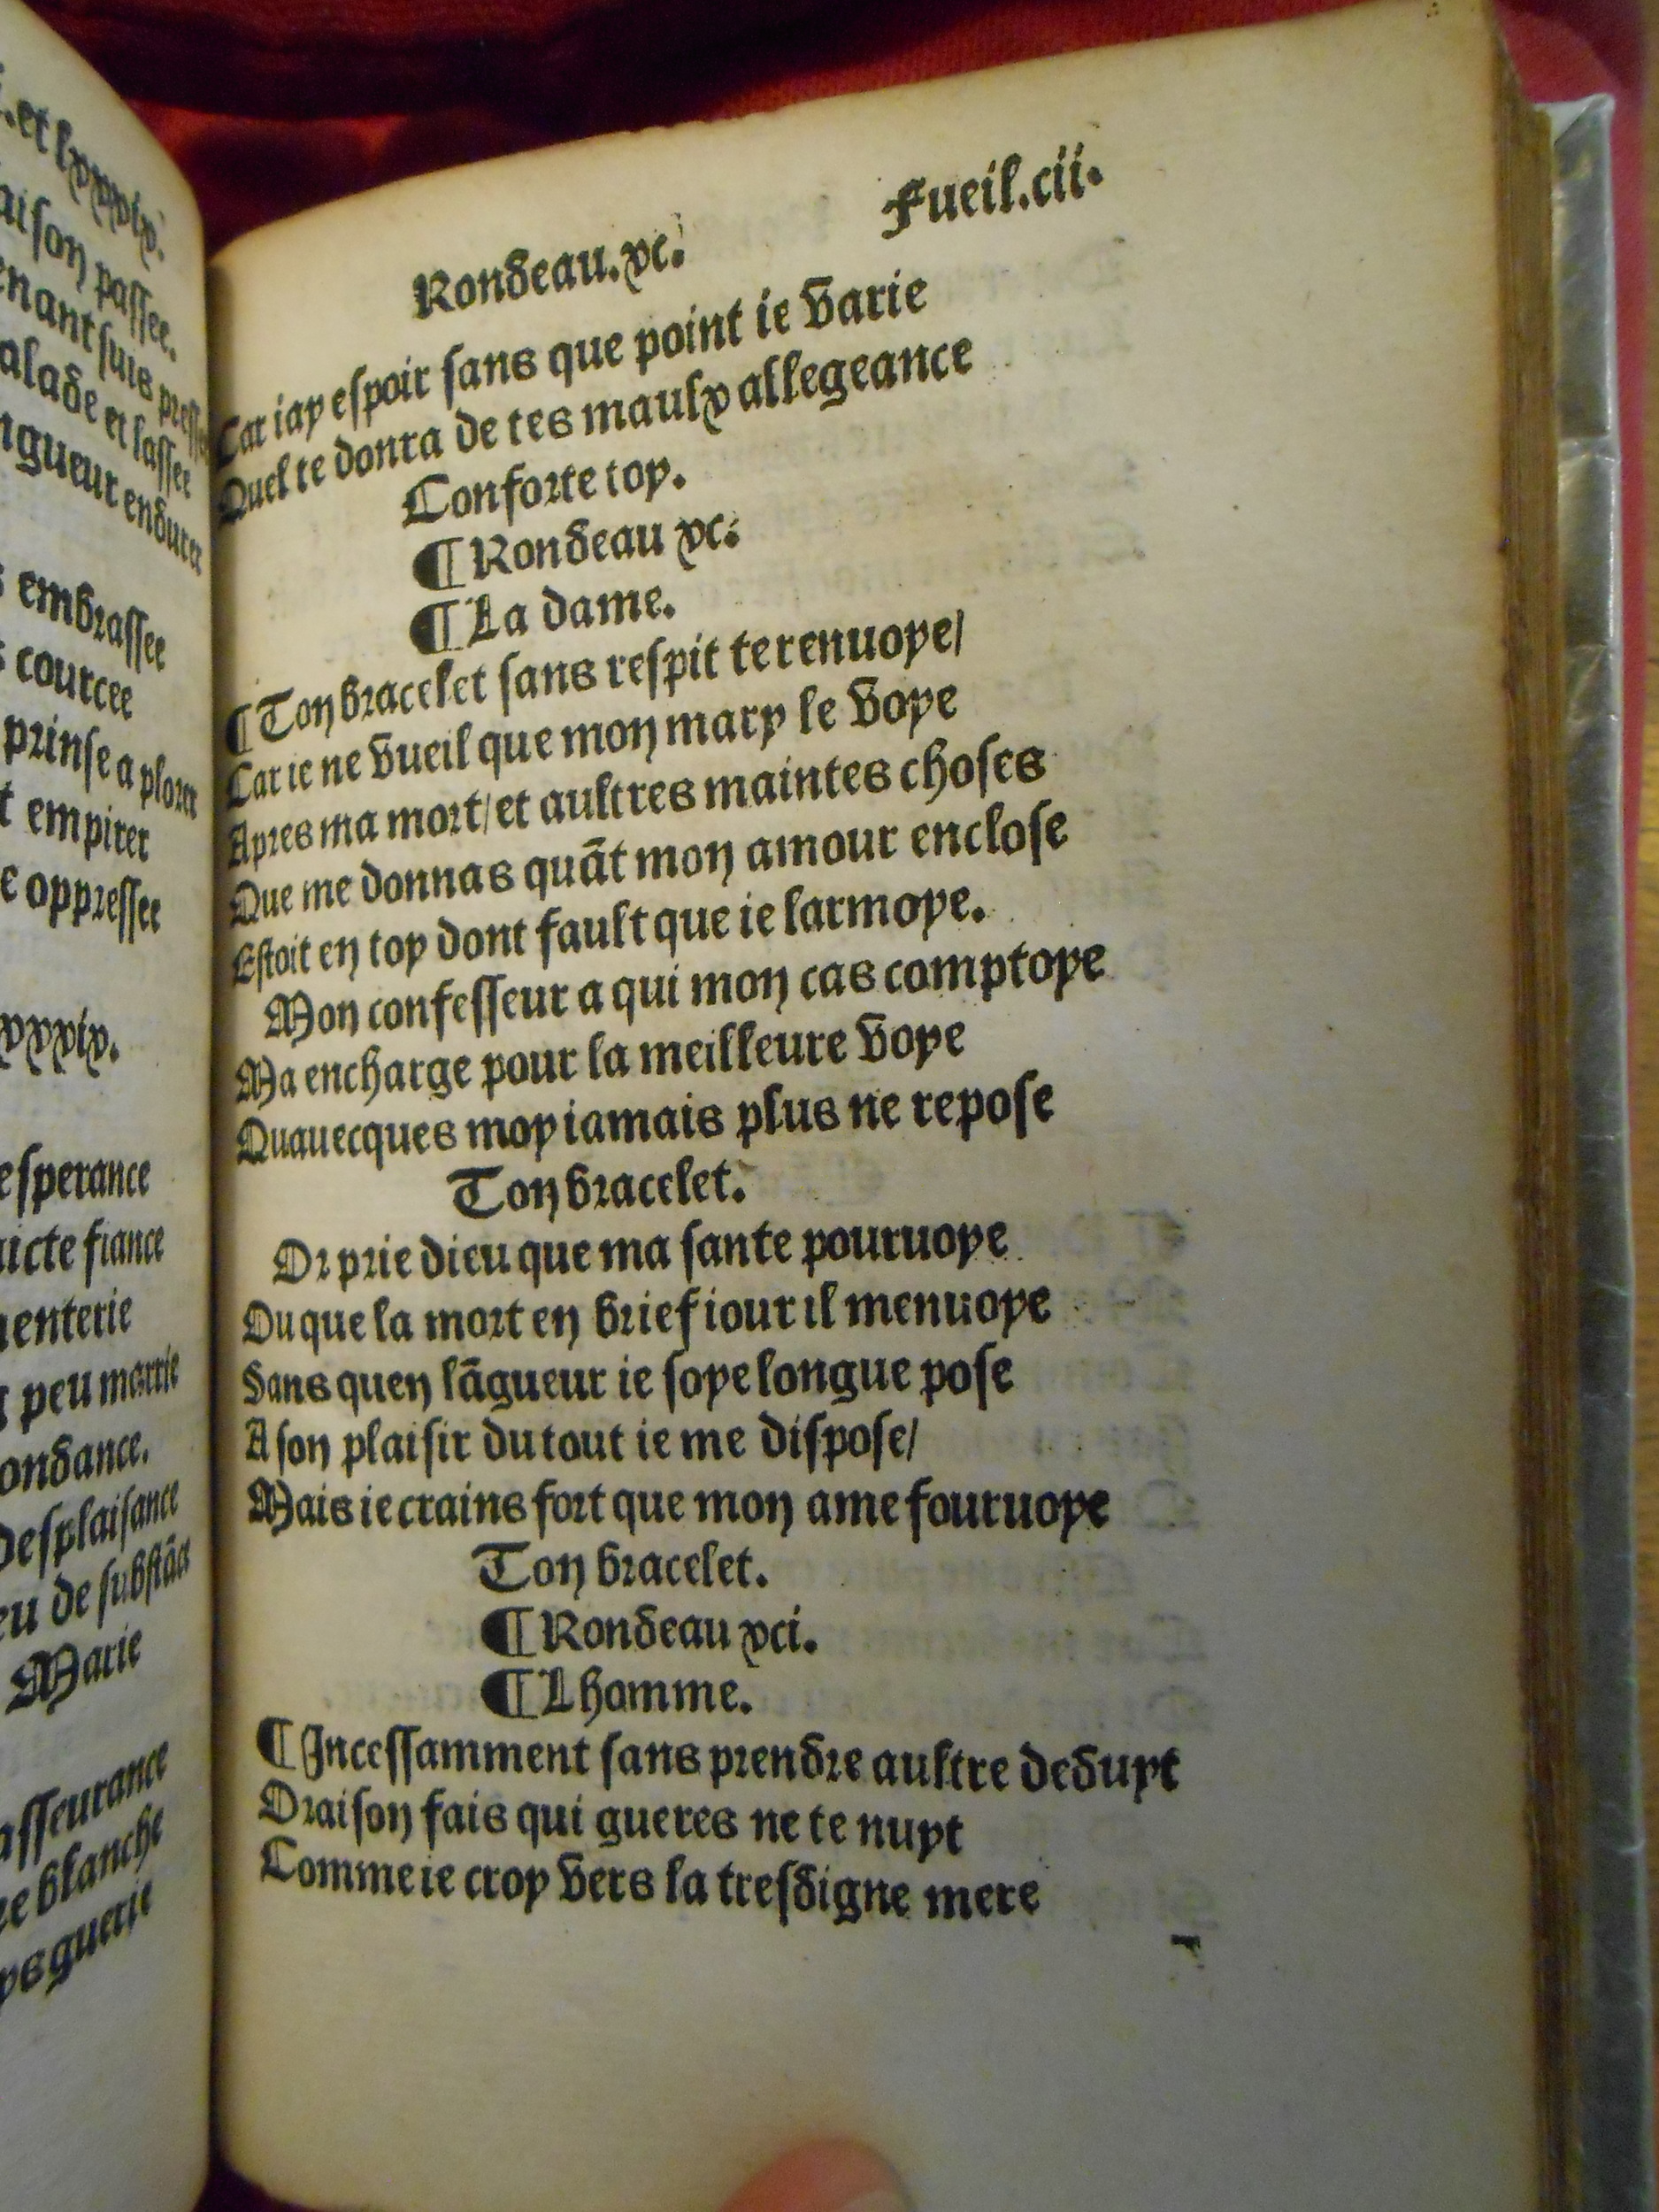 .et lxxxix.
aison passee.
enant suis press
alade et lassee
ngueur endurer
s embrassee
s courcee
prinse a plorer
t empirer
e oppressee
xxxix.
esperance
icte fiance
enterie
peu marrie
ondance.
desplaisance
eu de substāce
Marie
asseurance
ee blanche
ps guerie
Fueil.cii.
Rondeau.xc.
Car iay espoir sans que point ie varie
Quel te donra de tes maulx allegeance
Conforte toy.
¶ Rondeau xc.
¶ La dame.
¶ Ton bracelet sans respit te renuoye/
Car ie ne vueil que mon mary le voye
Apres ma mort/et aultres maintes choses
Que me donnas quāt mon amour enclose
Estoit en toy dont fault que ie larmoye.
Mon confesseur a qui mon cas comptoye
Ma encharge pour la meilleure voye
Quauecques moy iamais plus ne repose
Ton bracelet.
Or prie dieu que ma sante pouruoye
Ou que la mort en brief iour il menuoye
Sans quen lāgueur ie soye longue pose
A son plaisir du tout ie me dispose/
Mais ie crains fort que mon ame fouruoye
Ton bracelet.
¶ Rondeau xci.
¶ Lhomme.
¶ Incessamment sans prendre aultre deduyt
Oraison fais qui gueres ne te nuyt
Comme ie croy vers la tresdigne mere